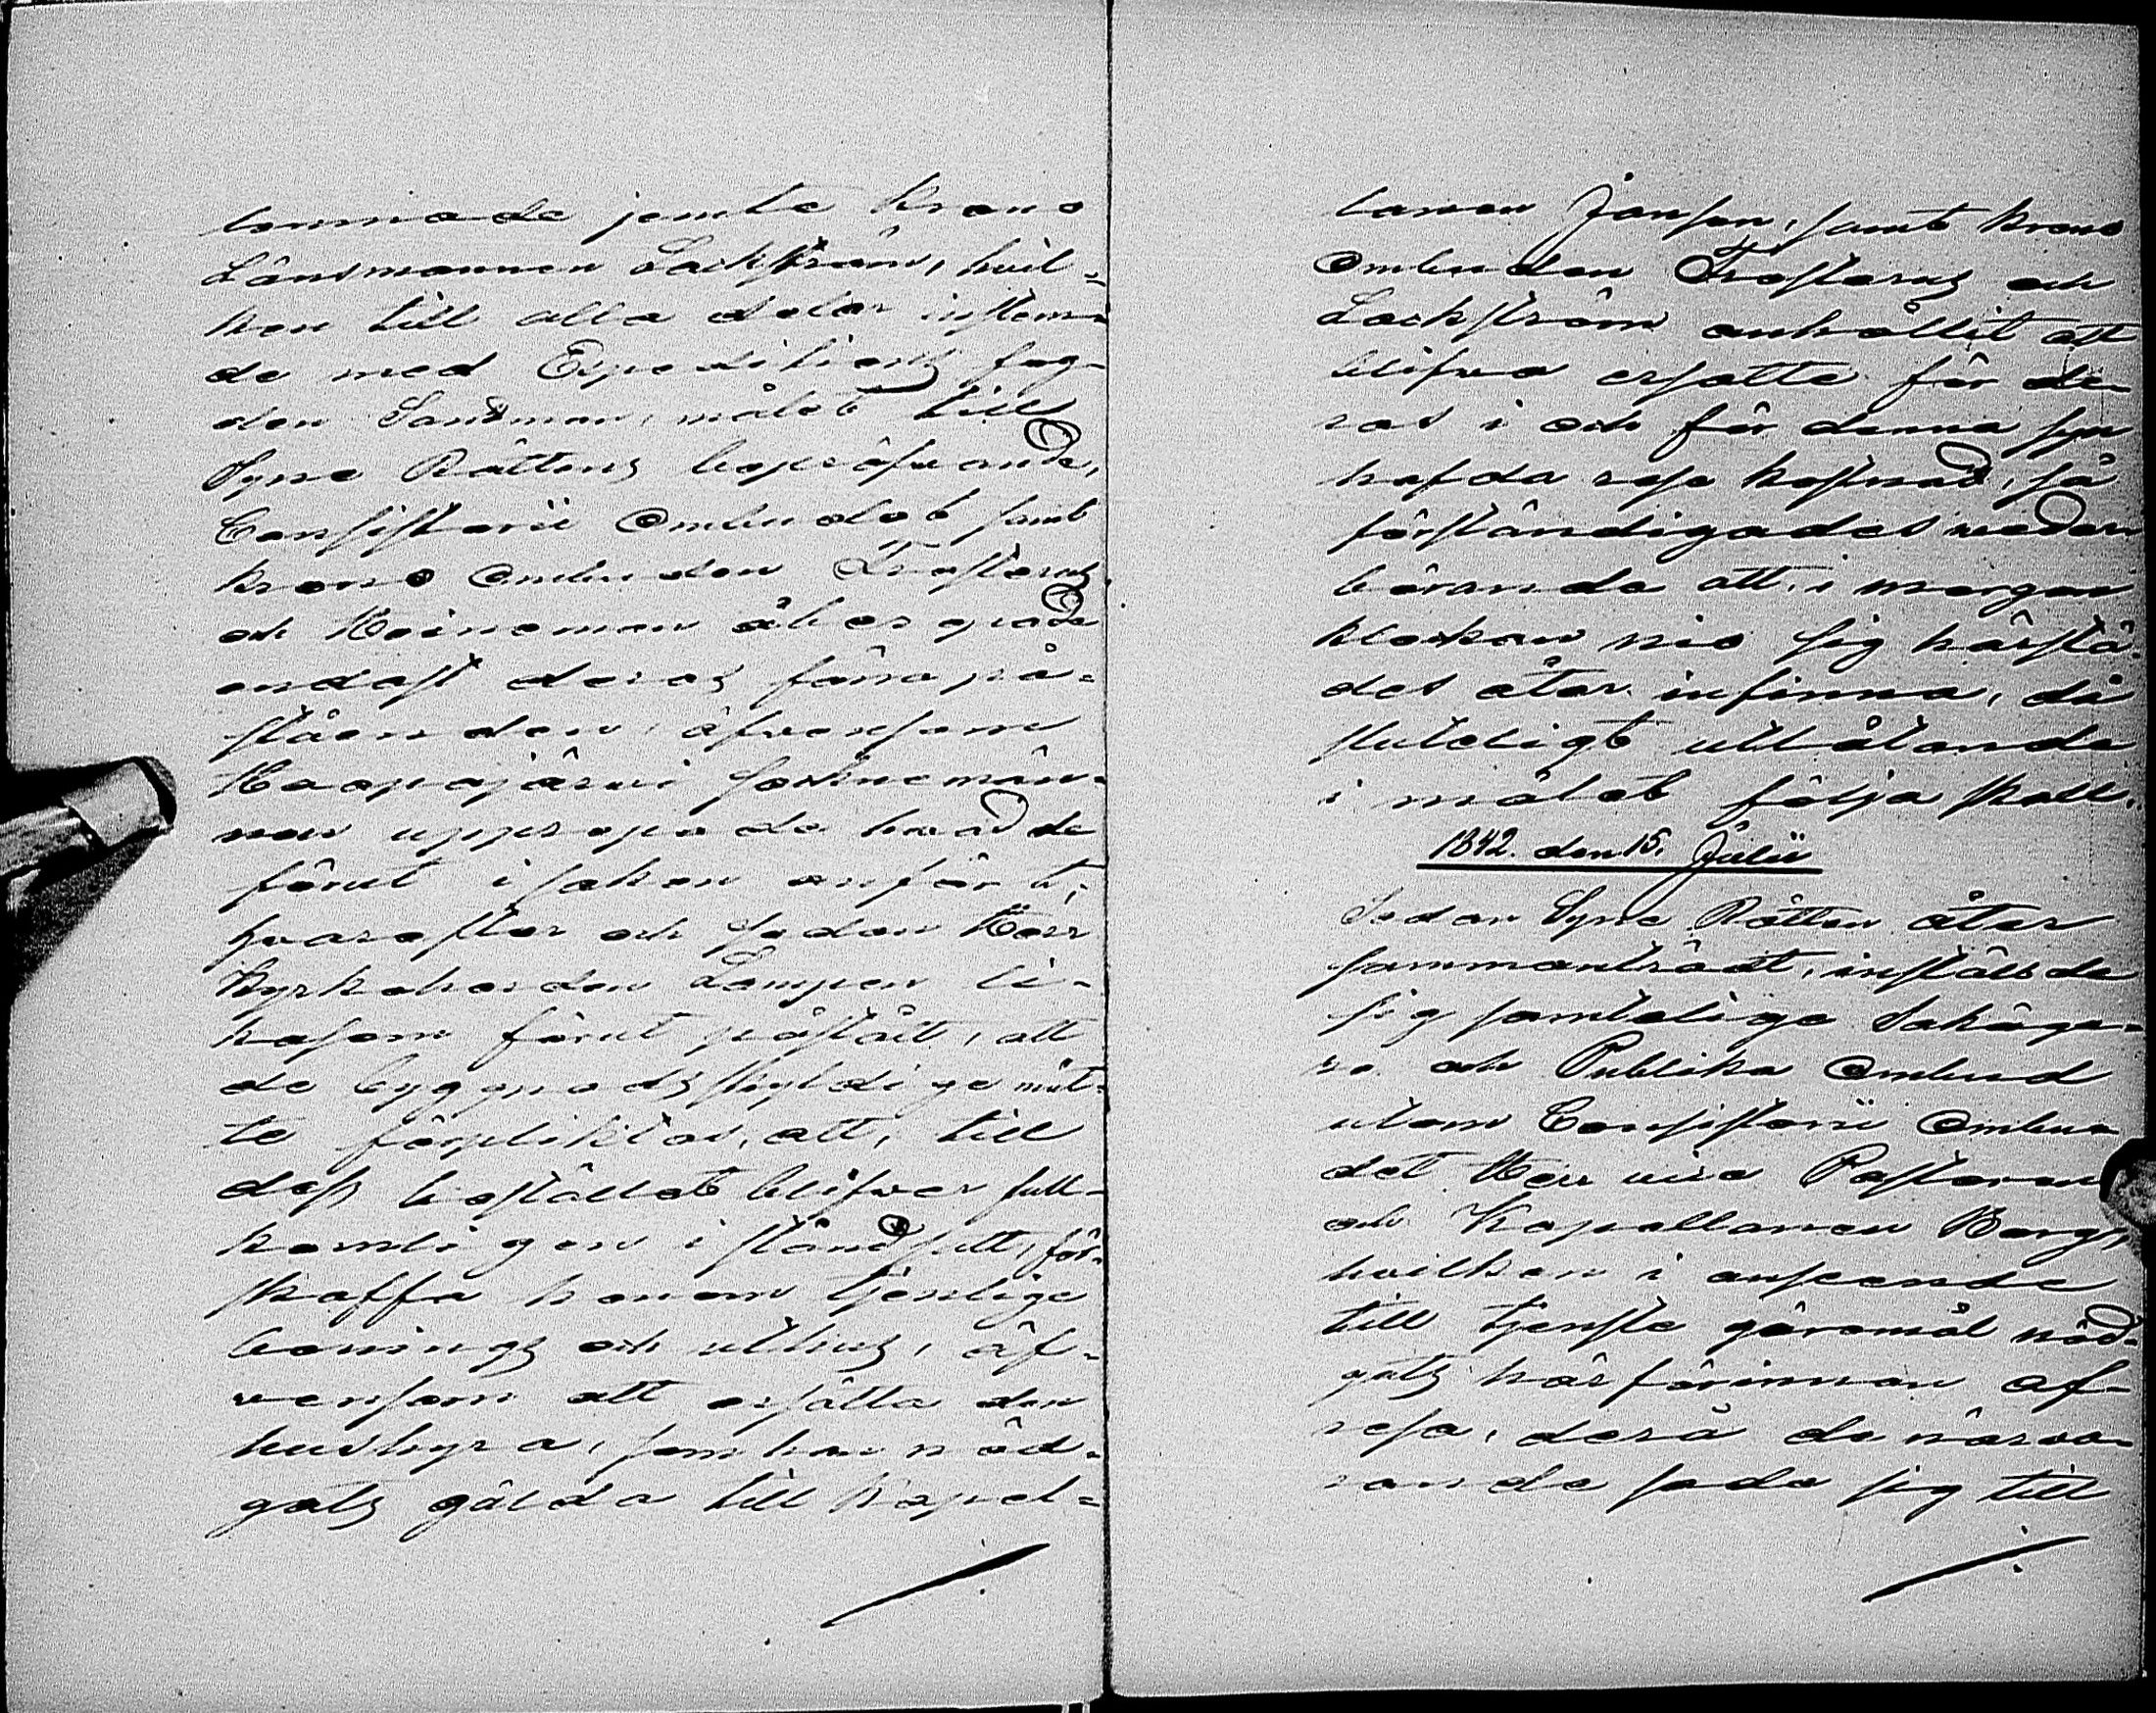 lemnade jemte Krono
Länsmannen Lackström, hvil-
ken till alla delar instäm-
de med Expeditions fog-
den Sandman, målet till
Syne Rättens bepröfvande,
Consistorii Ombudet samt
krono Ombuden Trasterus
och Heinoman åberopade
endast deras förra på-
ståenden, äfvensom
Haapajärvi Sockne män-
nen upprepade hvad de
förut i saken anfört;
hvarefter och sedan Herr
Kyrkoherden Lampen li-
kasom förut påstått, att
de byggnadsskyldige måt-
te förpliktas, att, till
dess bostället blifver full-
komligen iståndsatt, för-
skaffa honom tjenlige
bonings och uthus, äf-
vensom att ersätta den
hushyra, som han nöd-
gats gälda till Kapel-
lanen Jansson, samt krono
Ombuden Trasterus och
Lackström anhållit att
blifva ersatte för de-
ras i och för denna syn
hafda rese kostnad, så
förständigades veder-
börande att, i morgon
klockan nio sig härstä-
des åter infinna, då
sluteligt utlåtande
i målet följa skall.
1842. den 15. Julii
Sedan Syne Rätten åter
sammanträdt, inställde
sig samtelige Sakäga-
re och Publika Ombud
utom Consistorii Ombu-
det Herr vice Pastoren
och Kapellanen Berg,
hvilken i anseende
till tjenste göromål nöd-
gats härförinnan af-
resa, derå de närva-
rande sade sig till